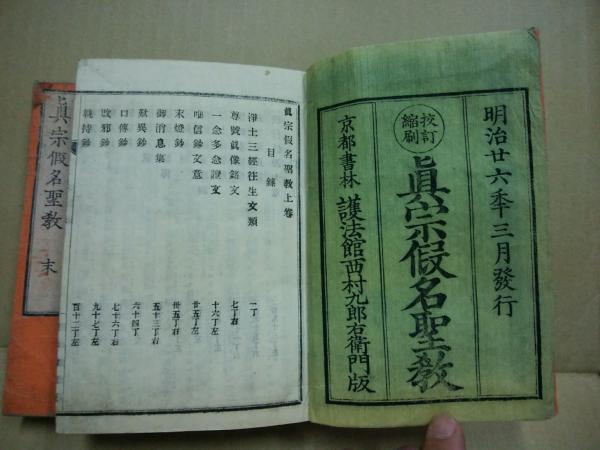 明治廿六年三月發行
校訂
縮刷
眞宗假名聖教
京都書林 護法館西村九郎右衛門版
眞宗假名聖教上卷
目錄
淨土三經往生文類 一丁
尊號眞像銘文 七丁右
一念多念證文 十六丁左
唯信鈔文意 廿五丁左
末燈鈔 卅五丁左
御消息集 五十三丁右
歎異鈔 六十四丁
口傳鈔 七十六丁右
改邪鈔 九十七丁左
執持鈔 百十二丁左
眞宗假名聖教 末